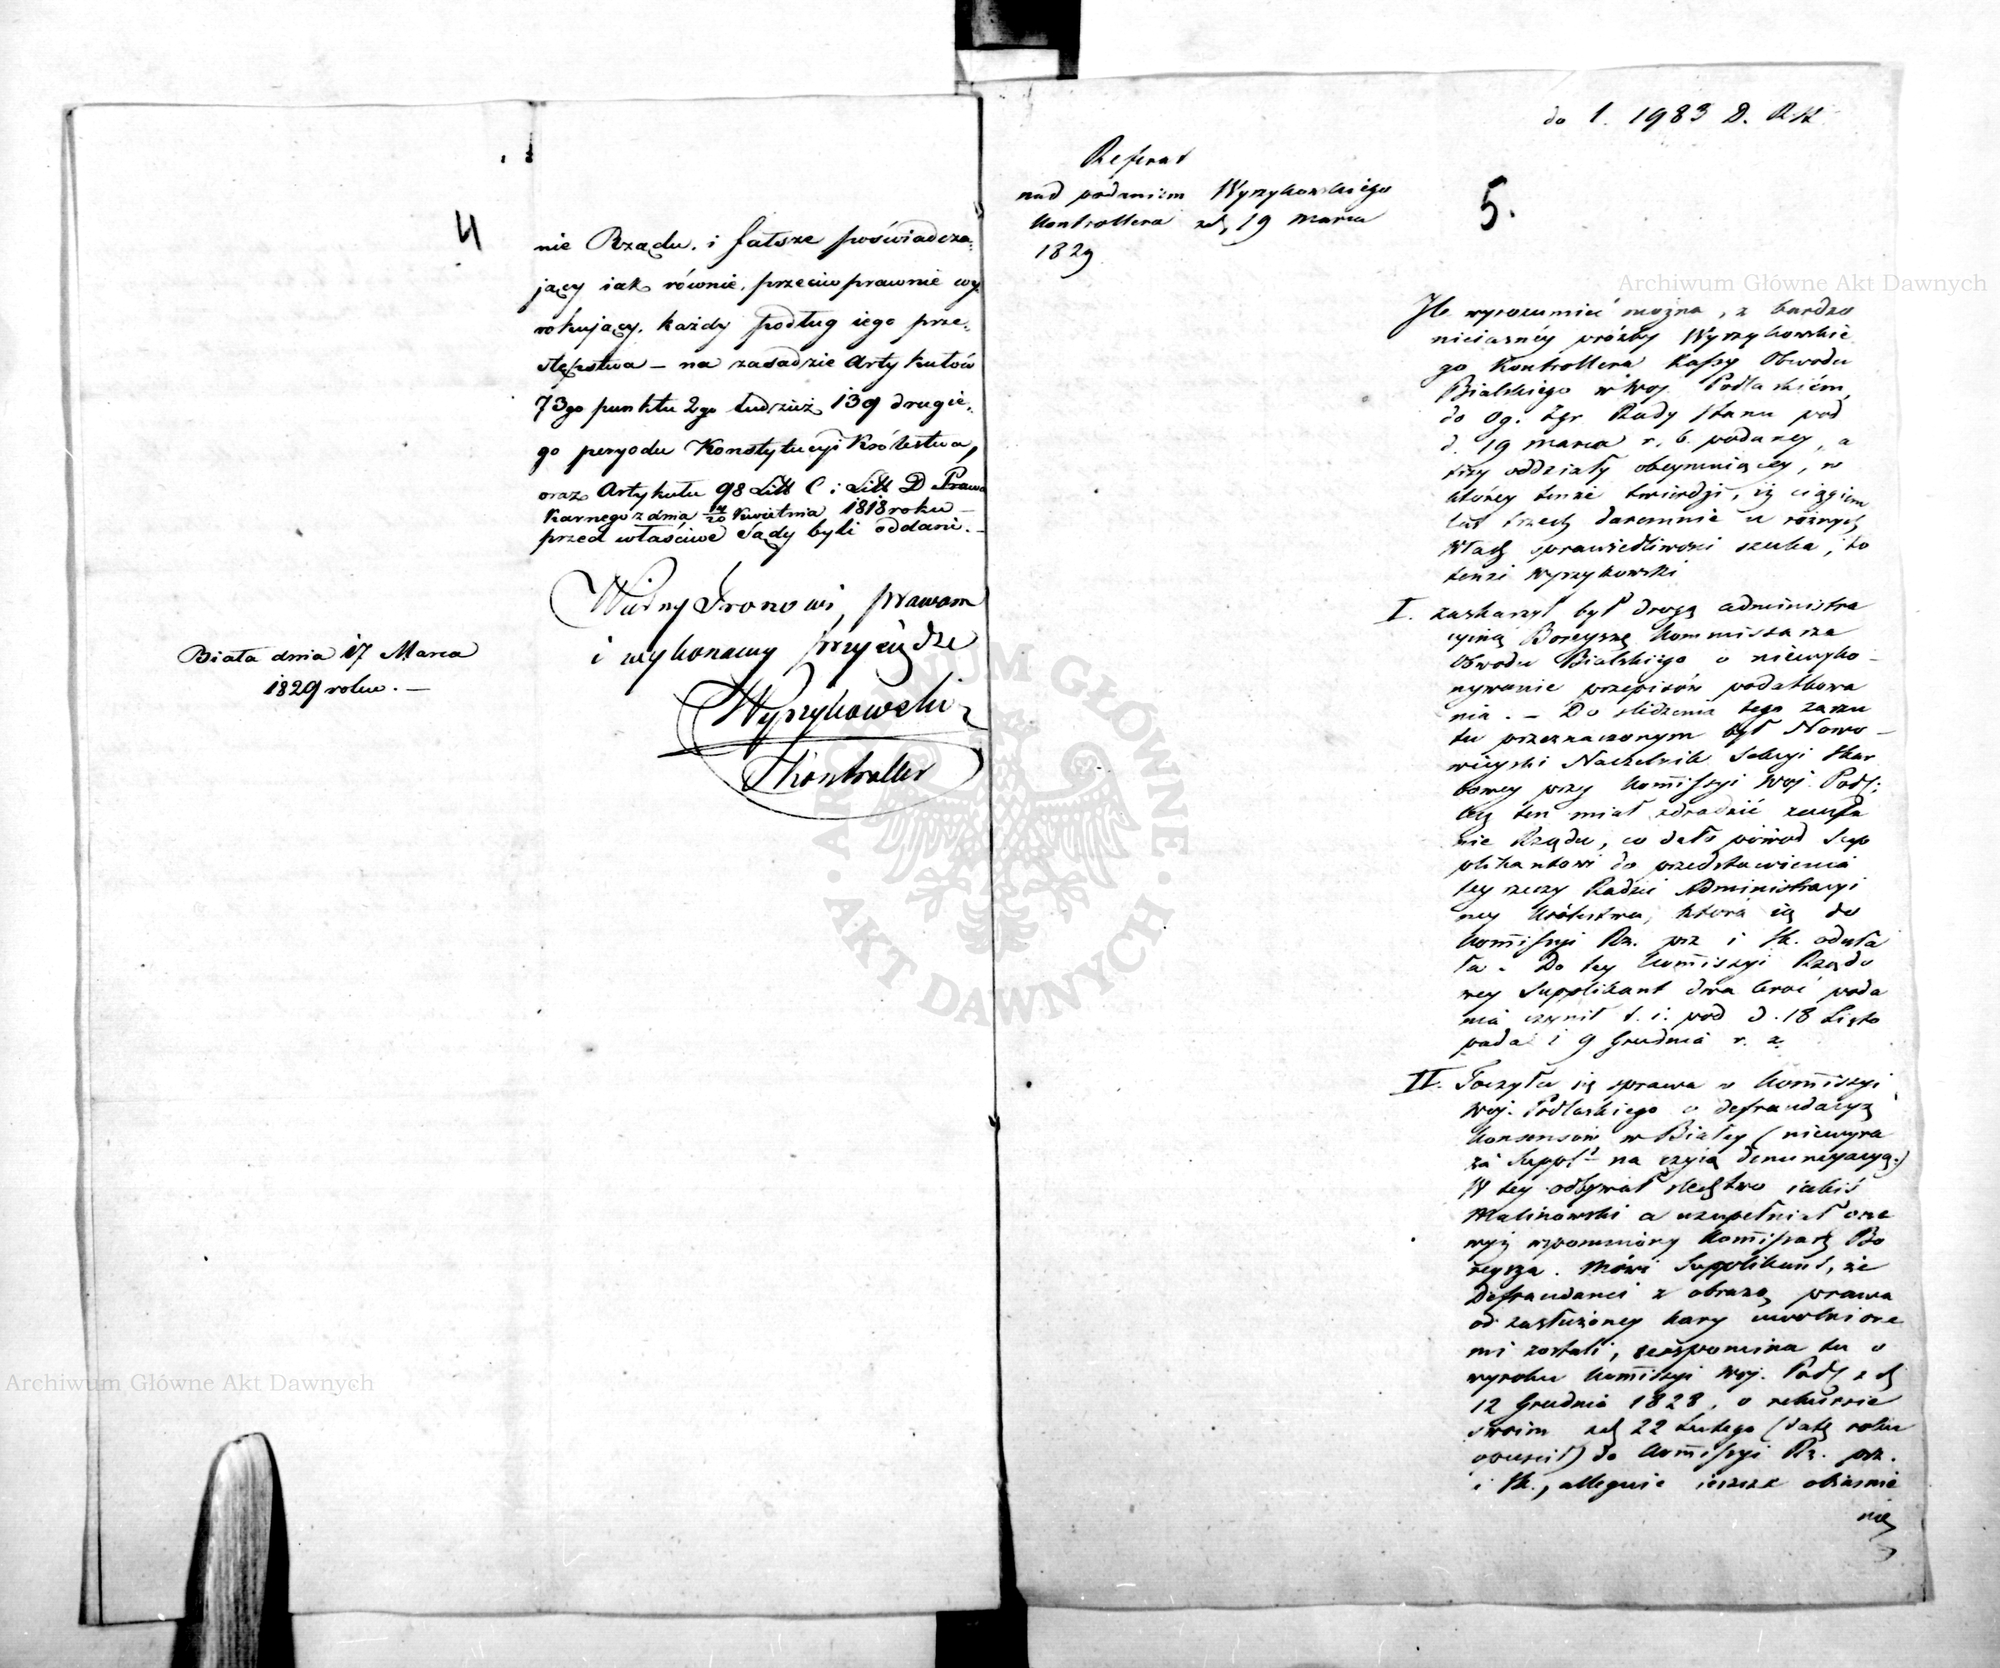 4
nie Rządu, i fałsze poświadcza-
jący iak równie, przeciw prawnie wy
rokujący, każdy podług iego prze-
stępstwa – na zasadzie Artykułów
73go punktu 2go tudzież 139 drugie-
go peryodu Konstytucyi Królestwa,
oraz Artykułu 98 Litt C i Litt D Prawa
Karnego z dnia 14/20 Kwietnia 1818 roku –
przed właściwe Sądy byli oddani. –
Wierny Tronowi, prawom
i wykonawcy przysiędze
Wyrzykowski
Kontroller
Biała dnia 17 Marca
1829 roku. –
do l. 1983 D. R.
Referat
nad podaniem Wyrzykowskiego
Kontrollera z d. 19 marca
1829
5.
Ile wyrozumieć można, z bardzo
nieiasnéy prózby Wyrzykowskie
go Kontrollera Kassy Obwodu
Bialskiego w Woj. Podlaskiém,
do Og. Zgr. Rady Stanu pod
d. 19 marca r. b. podaney, a
trzy oddziały obeymuiącey, w
którey tenże twierdzi, iż ciągiem
lat trzech daremnie u różnych
Władz sprawiedliwości szuka, to
tenże Wyrzykowski
I. zaskarżył był drogą administra
cyiną Boreyszę Kommissarza
Obwodu Bialskiego o niewyko-
nywanie przepisów podatkowa
nia. – Do śledzenia tego zarzu
tu przeznaczonym był Nowo-
wieyski Naczelnik Sekcyi Skar
bowey przy Kommissyi Woj. Podl:
lecz ten miał zdradzić zaufa
nie Rządu, co dało powód Sup
plikantowi do przedstawienia
tey rzeczy Radzie Administracyi
ney Królestwa, która ią do
Kommissyi Rz. prz. i Sk. odesła
ła. Do tey Kommissyi Rządo
wey Supplikant dwa kroć poda
nia czynił t. i. pod d. 18 Listo
pada i 9 Grudnia r. z.
II. Toczyła się sprawa w Kommissyi
Woj. Podlaskiego o defraudacyą
konsensów w Białey (niewyra
ża Suppl. na czyią denuncyacyą.)
W tey odbywał śledztwo iakiś
Malinowski a uzupełniał one
wyż wspomniony Kommissarz Bo
reysza. Mówi Supplikant, że
Defraudanci z obrazą prawa
od zasłużoney kary uwolnione
mi zostali, wspomina tu o
wyroku Kommissyi Woj. Podl. z d.
12 Grudnia 1828, o rekursie
swoim z d. 22 Lutego (datę roku
opuścił) do Kommissyi Rz. prz.
i Sk., alleguie ieszcze obiaśnie
nie
Archiwum Główne Akt Dawnych
Archiwum Główne Akt Dawnych
ARCHIWUM GŁÓWNE · AKT DAWNYCH ·